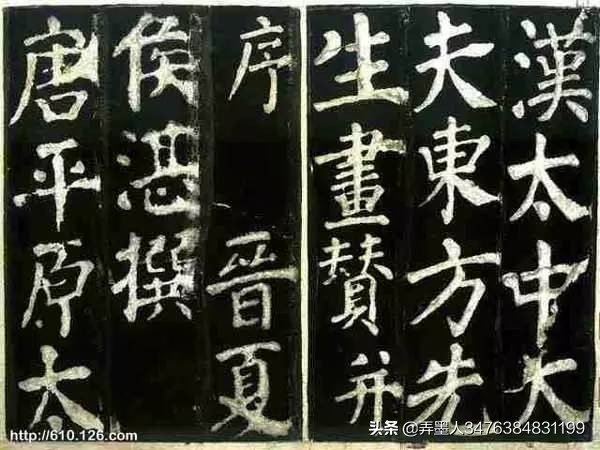 漢太中大
夫東方先
生畫赞并
序 晉夏
侯湛撰
唐平原太
http://610.126.com
头条 @弄墨人3476384831199